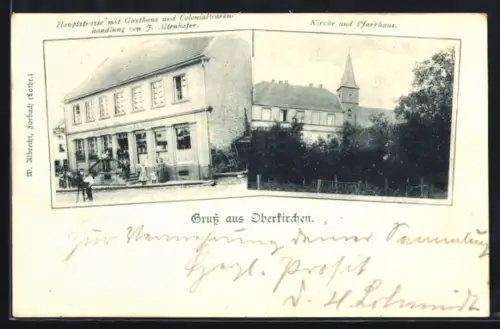 Hauptstrasse mit Gasthaus und Colonialwaren-
handlung von J. Altenhofer.
Kirche und Pfarrhaus.
W. Albrecht, Forbach (Lothr.)
Gruß aus Oberkirchen.
Zur Vermehrung deiner Sammlung
Hrzgl. Prosit
H. Schmidt